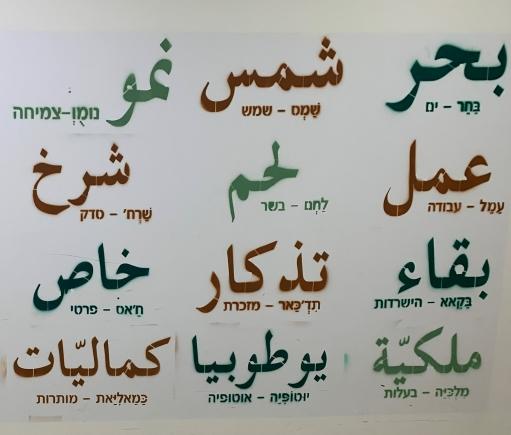 بحر
בַּחַר – ים
شمس
שַׁמְס – שמש
نمو
נוּמֻוּ–צמיחה
عمل
עַמַל – עבודה
لحم
לַחְם – בשר
شرخ
שַׁרְח' – סדק
بقاء
בַּקַאא – הישרדות
تذكار
תִדְ'כַּאר – מזכרת
خاص
ח'אס – פרטי
ملكيّة
מִלְכִּיַה – בעלות
يوطوبيا
יוּטוֹפְּיַה – אוטופיה
كماليّات
כַּמַאלִיַאת – מותרות